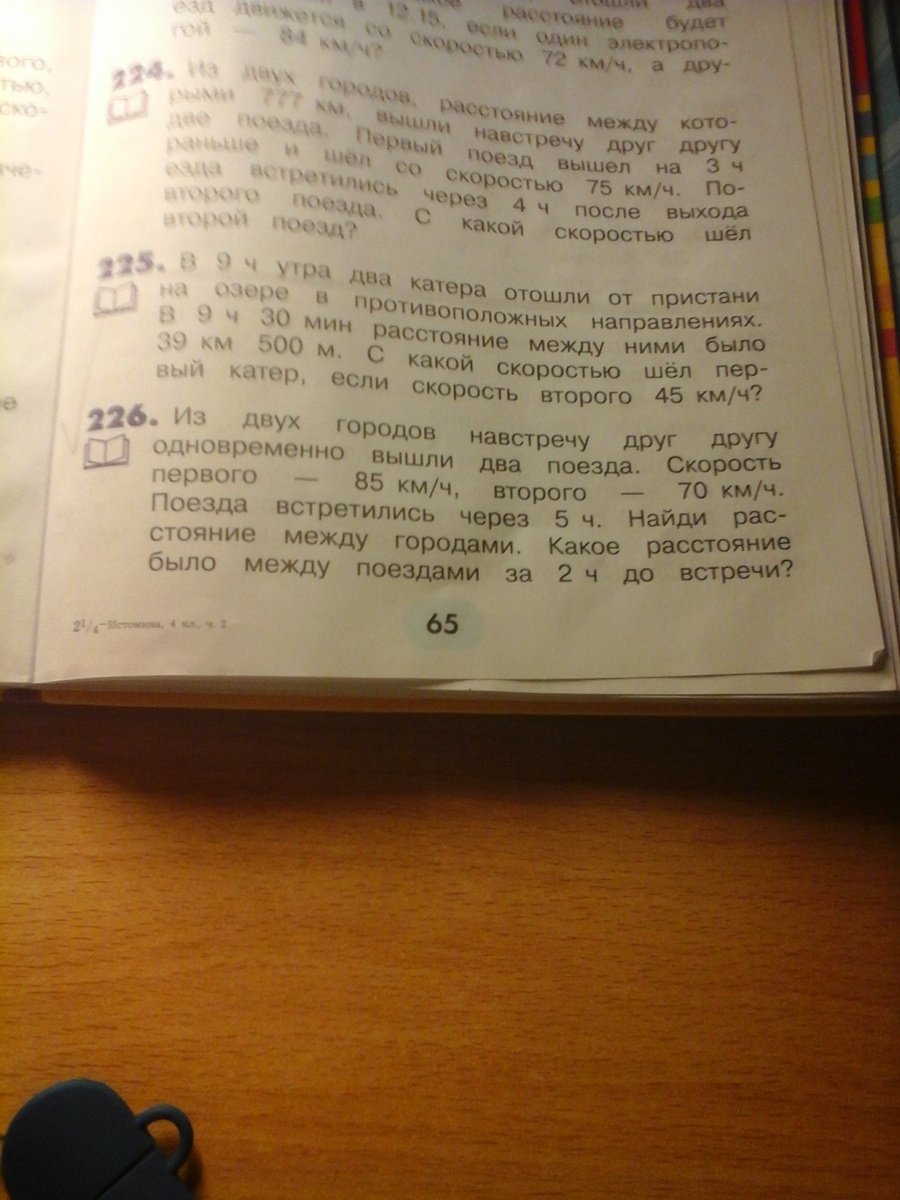 в 12.15, если один электропо-
езд движется со скоростью 72 км/ч, а дру-
гой — 84 км/ч?
расстояние будет
вого,
тью,
ско-
че-
е
224. Из двух городов, расстояние между кото-
рыми 777 км, вышли навстречу друг другу
две поезда. Первый поезд вышел на 3 ч
раньше и шёл со скоростью 75 км/ч. По-
езда встретились через 4 ч после выхода
второго поезда. С какой скоростью шёл
второй поезд?
225. В 9 ч утра два катера отошли от пристани
на озере в противоположных направлениях.
В 9 ч 30 мин расстояние между ними было
39 км 500 м. С какой скоростью шёл пер-
вый катер, если скорость второго 45 км/ч?
226. Из двух городов навстречу друг другу
одновременно вышли два поезда. Скорость
первого — 85 км/ч, второго — 70 км/ч.
Поезда встретились через 5 ч. Найди рас-
стояние между городами. Какое расстояние
было между поездами за 2 ч до встречи?
2¹/₄—Истомина, 4 кл., ч. 2
65